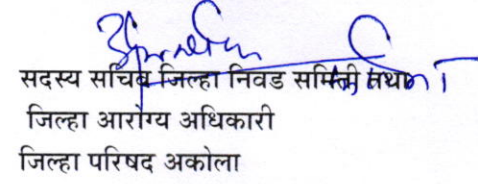 सदस्य सचिव जिल्हा निवड समिती तथा
जिल्हा आरोग्य अधिकारी
जिल्हा परिषद अकोला